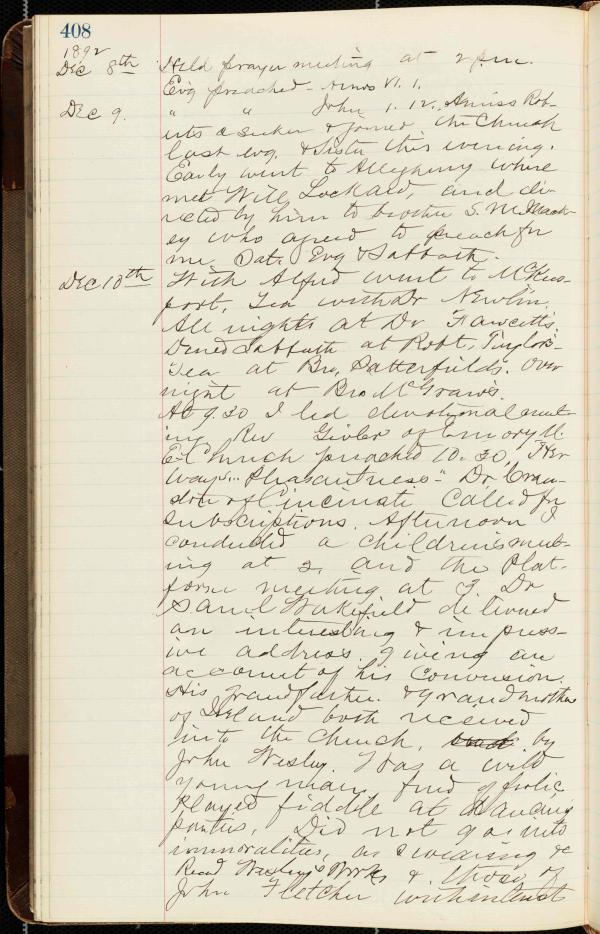 408
1892
Dec 8th Held prayer meeting at 2 p.m.
Evg preached - Amos VI. 1.
Dec 9. " " John 1. 12. Amiss Rob-
erts a seeker & joined the Church
last evg. & Sister this evening.
Early went to Allegheny where
met Will Lockard, and di-
rected by him to brother S. M. Mack-
ey who agreed to preach for
me Sat. Evg & Sabbath.
Dec 10th With Alfred went to McKees-
port, Tea with Dr Newlin.
All nights at Dr Fawcetts.
Dined Sabbath at Robt. Taylor's-
Tea at Bro. Satterfields. Over
night at Bro McGraws.
At 9.30 I led devotional meet-
ing Rev Givler of Emory M.
E. Church preached 10.30 "Her
ways... Pleasantness." Dr Cran-
ston of Cincinati Called for
Subscriptions. Afternoon I
conducted a childrens meet-
ing at 2, and the Plat-
form meeting at 3. Dr
Saml Wakefield delivered
an interesting & impress-
ive address giving an
account of his Conversion.
His Grandfather & Grandmother
of Ireland both received
into the Church, by
John Wesley. Was a wild
young man fond of frolic
Played fiddle at Dancing
parties. Did not go into
immoralities, as Swearing &c
Read Wesley's Works & those of
John Fletcher with interest